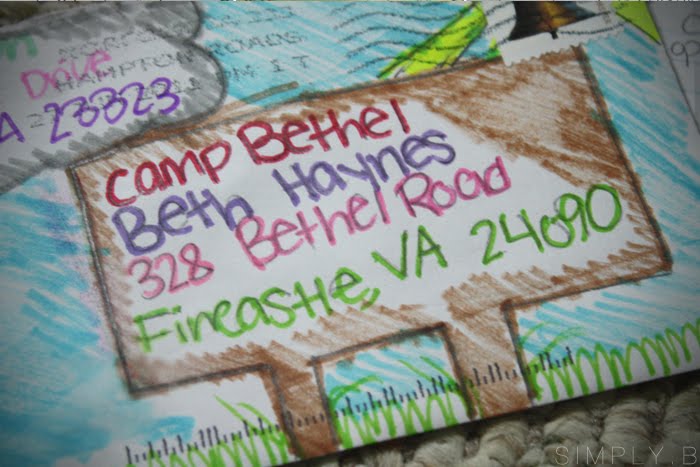 Drive
A 23323
HAMPTON ROADS
Camp Bethel
Beth Haynes
328 Bethel Road
Fincastle, VA 24090
SIMPLY.B